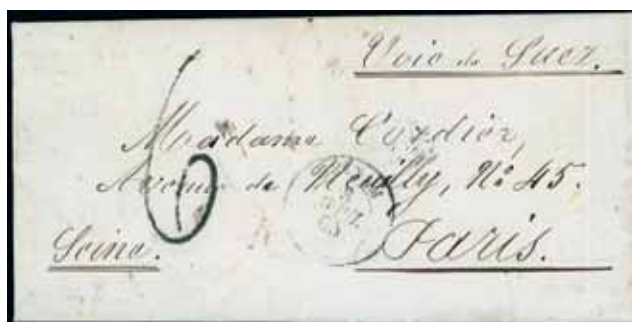 Voie de Suez.
6
Madame Cordier,
Avenue de Neuilly, No 45.
Seine.
Paris.